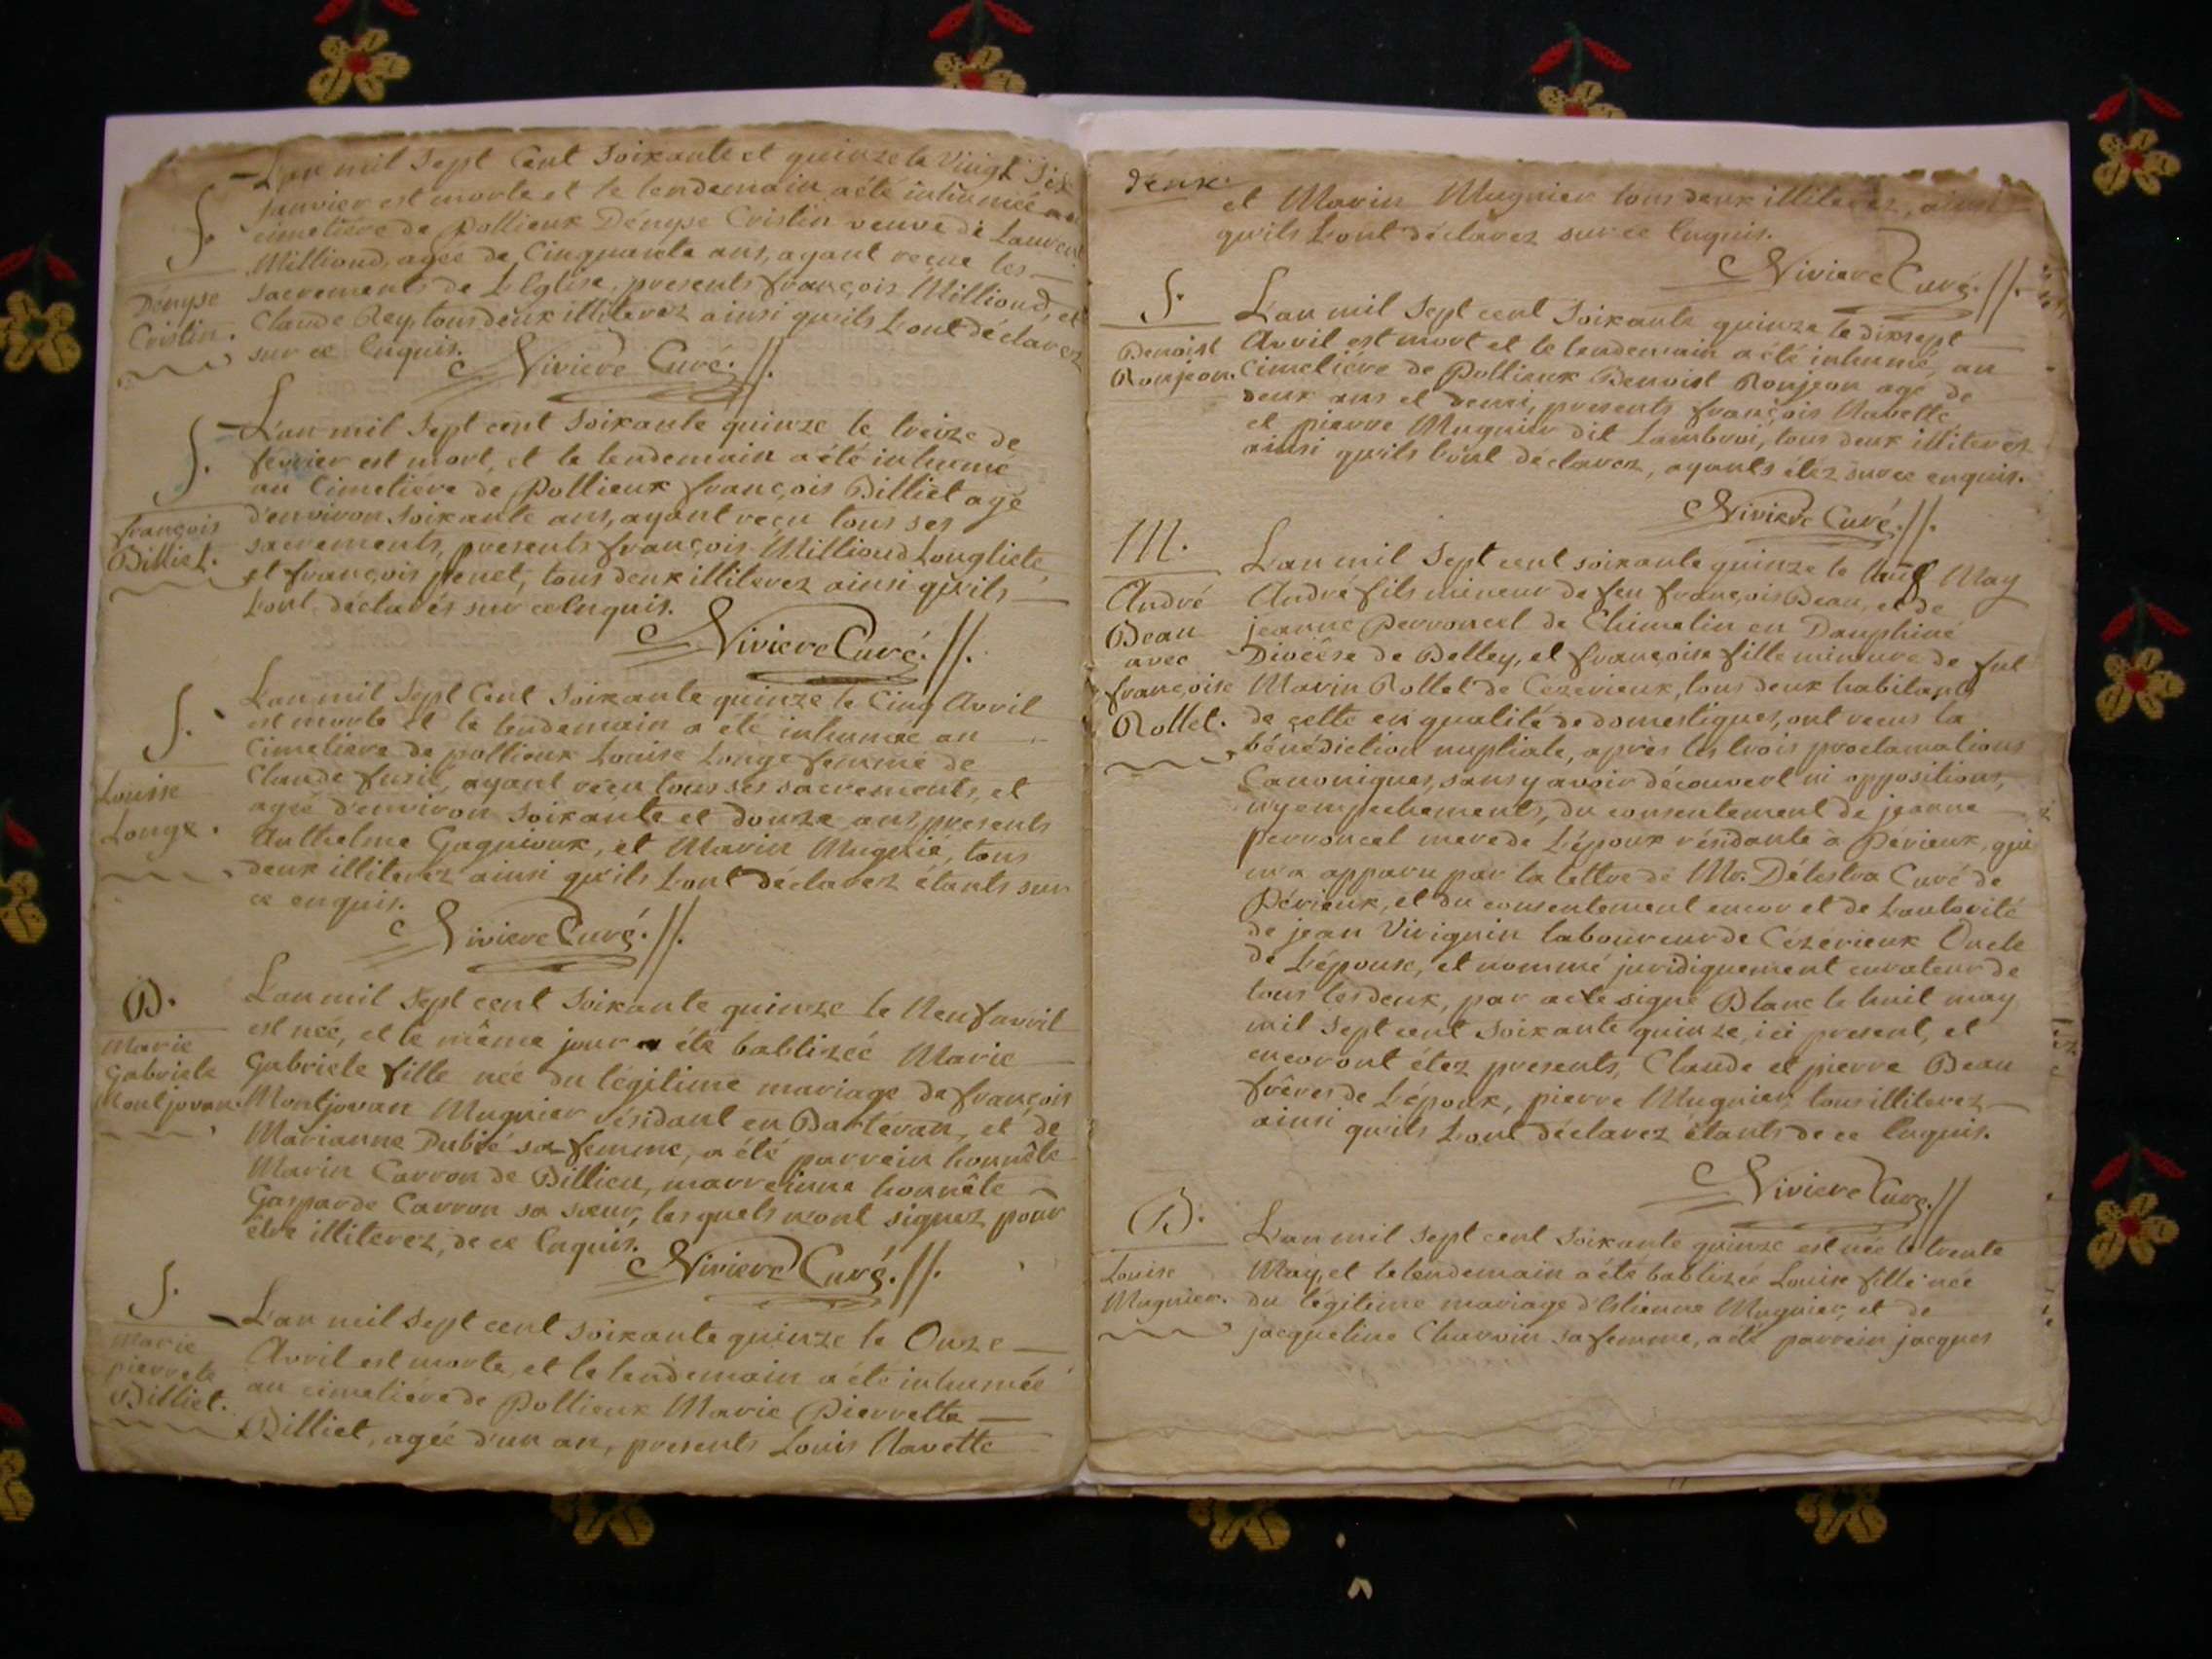 L'an mil Sept Cent Soixante et quinze le Vingt Six
S.
janvier est morte et le lendemain a été inhumée au
cimetière de Pollieux Dényse Cristin veuve de Laurent
Milliond, agée de Cinquante ans, ayant reçue les
Dényse
Cristin.
sacrements de L'Eglise, presents françois Milliond, et
Claude Rey, tous deux illiterez ainsi qu'ils L'ont déclarez
sur ce Enquis.
Riviere Curé.
S.
L'an mil Sept cent Soixante quinze le treize de
fevrier est mort, et le lendemain a été inhumé
au Cimetiére de Pollieux françois Billiet agé
françois
Billiet.
d'environ soixante ans, ayant reçu tous ses
sacrements, presents françois Milliond Longliete,
et françois penet, tous deux illiterez ainsi qu'ils
L'ont déclarés sur ce Enquis.
Riviere Curé.
S.
L'an mil Sept Cent Soixante quinze le Cinq Avril
est morte et le lendemain a été inhumée au
Cimetiére de pollieux Louise Longe femme de
Louise
Longe.
Claude fusil, ayant reçu tous ses sacrements, et
agée d'environ Soixante et douze ans, presents
Anthelme Gagnieux, et Marin Mugnié, tous
deux illiterez ainsi qu'ils L'ont déclarez étants sur
ce enquis.
Riviere Curé.
B.
Marie
Gabriele
Montjovan.
L'an mil Sept cent Soixante quinze le Neuf avril
est née, et le même jour a été babtizée Marie
Gabriele fille née du légitime mariage de françois
Montjovan Mugnier résidant en Bartéran, et de
Marianne Dubié sa femme, a été parrein honnête
Marin Carron de Billieu, marreinne honnête
Gasparde Carron sa sœur, lesquels n'ont signez pour
être illiterez, de ce Enquis.
Riviere Curé.
S.
Marie
pierrete
Billiet.
L'an mil Sept cent Soixante quinze le Onze
Avril est morte, et le lendemain a été inhumée
au cimetiére de Pollieux Marie Pierrette
Billiet, agée d'un an, presents Louis Navette
deux.
et Marin Mugnier tous deux illiterez, ainsi
qu'ils L'ont déclarez sur ce Enquis.
Riviere Curé.
S.
Benoist
Ronjeon.
L'an mil Sept cent Soixante quinze le dixsept
Avril est mort et le lendemain a été inhumé, au
Cimetiére de Pollieux Benoist Ronjeon agé de
deux ans et demi, presents françois Navette,
et pierre Mugnier dit Lambroi, tous deux illiterez
ainsi qu'ils l'ont déclarez, ayants étéz sur ce enquis.
Riviere Curé.
M.
André
Beau
avec
françoise
Rollet.
L'an mil Sept cent soixante quinze le neuf May
André fils mineur de feu françois Beau, et de
jeanne perroncel de Chimelin en Dauphiné
Diocèse de Belley, et françoise fille mineure de fut
Marin Rollet de Cezerieux, tous deux habitants
de cette en qualité de domestiques, ont reçus la
bénédiction nuptiale, après les trois proclamations
Canoniques, sans y avoir découvert ni oppositions,
ny empechements, du consentement de jeanne
perroncel mere de L'époux résidante à Périeux, qui
m'a apparu par la lettre de Mr. Délestra Curé de
Périeux, et du consentement encor et de L'autorité
de jean Viriguin laboureur de Cézérieux Oncle
de L'épouse, et nommé juridiquement curateur de
tous les deux, par acte signé Blanc le huit may
mil Sept cent Soixante quinze, ici present, et
encor ont étez presents, Claude et pierre Beau
frères de L'époux, pierre Mugnier, tous illiterez
ainsi qu'ils L'ont déclarez étants de ce Enquis.
Riviere Curé.
B.
Louise
Mugnier.
L'an mil Sept cent Soixante quinze est née le trente
May, et le lendemain a été babtizée Louise fille née
du légitime mariage d'Estienne Mugnier, et de
jacqueline Charvin sa femme, a été parrein jacques